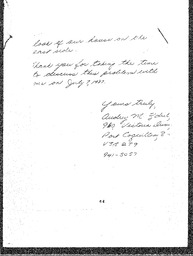 look of our house on the
east side.
Thank you for taking the time
to discuss this problem with
me on July 7, 1987.
Yours truly,
Audrey M.
Victoria Drive,
Port Coquitlam B.C.
941-5057